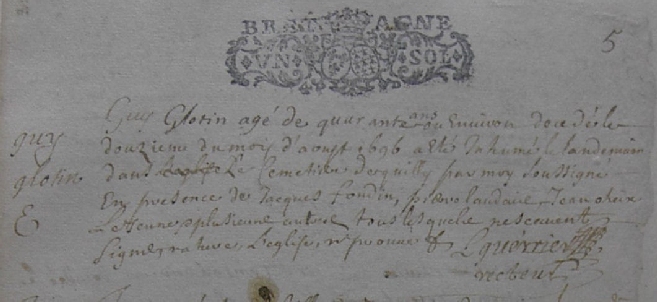 BRETAGNE
UN SOL
5
guy
glotin
Guy Glotin agé de quarante ans ou Environ decedé le
douzieme du mois d'aoust 1696 a esté Inhumé le landemain
dans le Cemetiere derquilly par moy soussigné
En presence de Jacques foudin, Jean
Le Jeune plusieurs autres tous lesquels ne scavent
signer, rature l'eglise, reprouvé Lguerrier
recteur